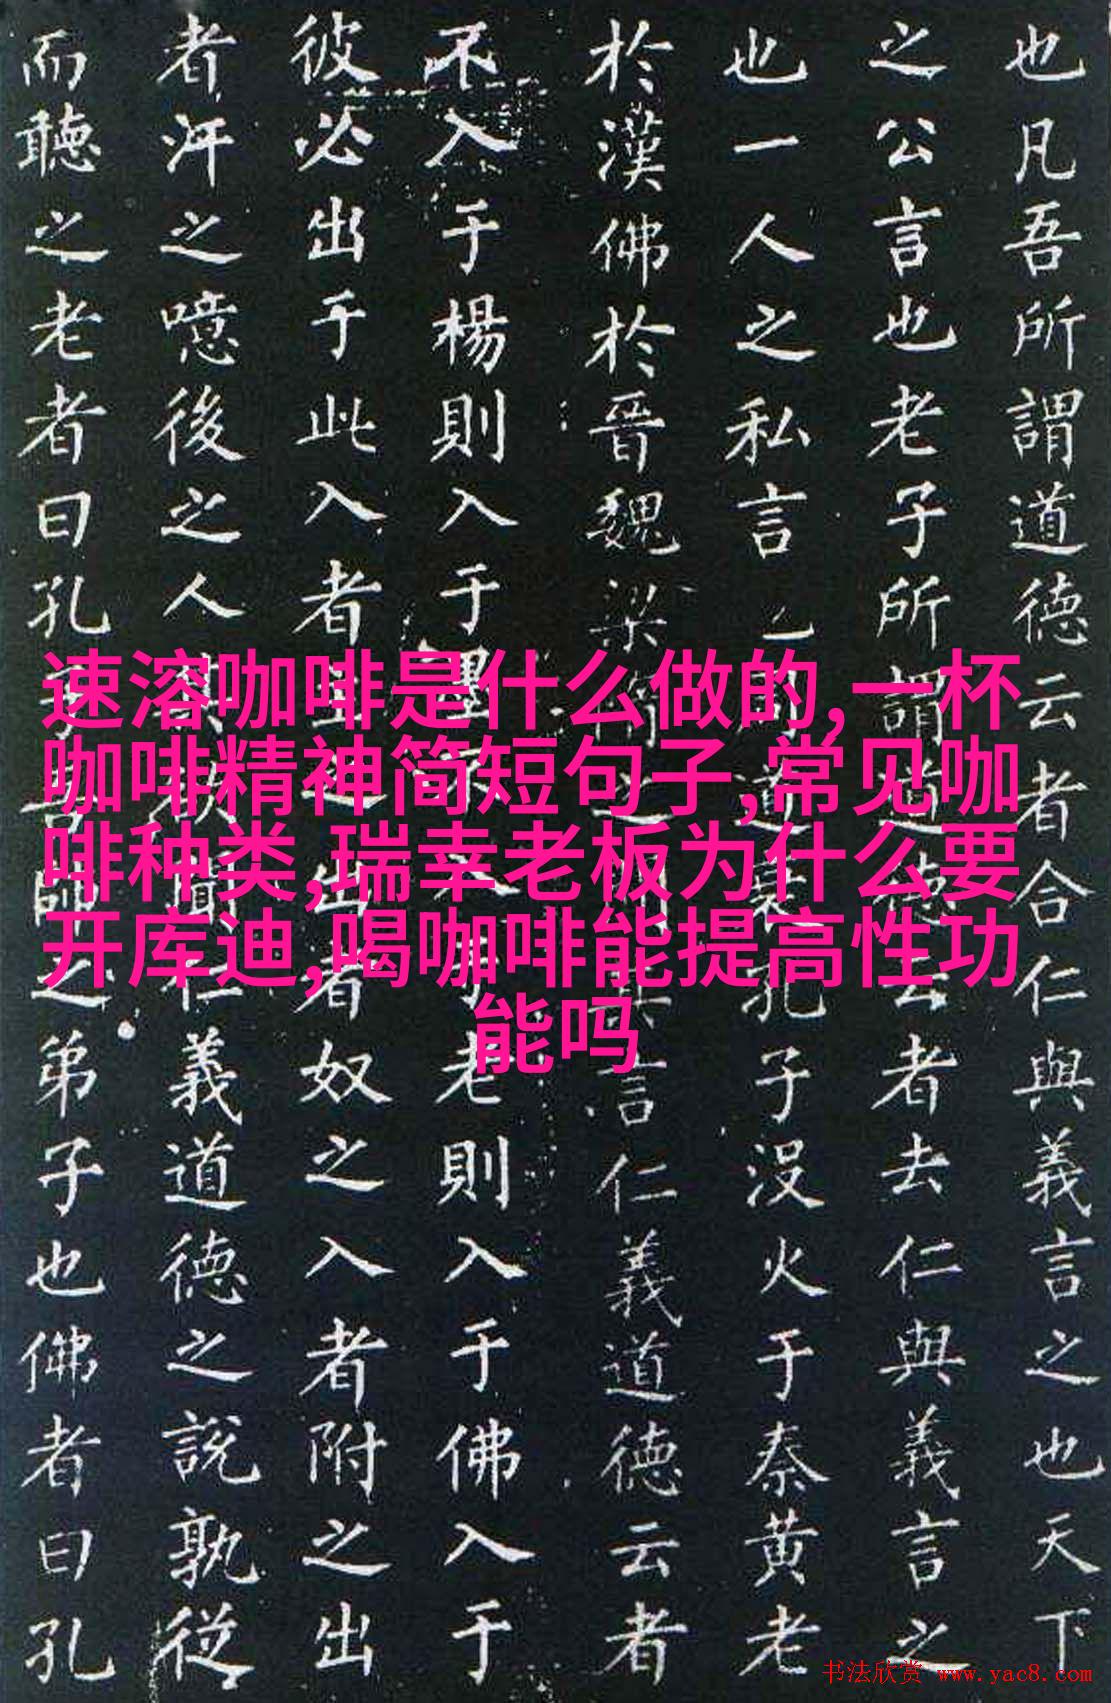 也凡吾所謂道德云者合仁與義言之也天下
之公言也老子所謂道德云者去仁與義言之
也一人之私言道衰孔子没火于秦黄老
於漢佛於晉魏梁隋之間其言仁義道德云者
不入于楊則入于墨不入于老則入于佛入于
彼必出于此入者主之出者奴之入者附之出
者汙之噫後之人其欲聞仁義道德之説孰從
而聽之老者曰孔子吾師之弟子也佛者曰孔
速溶咖啡是什么做的,一杯
咖啡精神简短句子,常见咖
啡种类,瑞幸老板为什么要
开库迪,喝咖啡能提高性功
能吗
书法欣赏 www.yac8.com